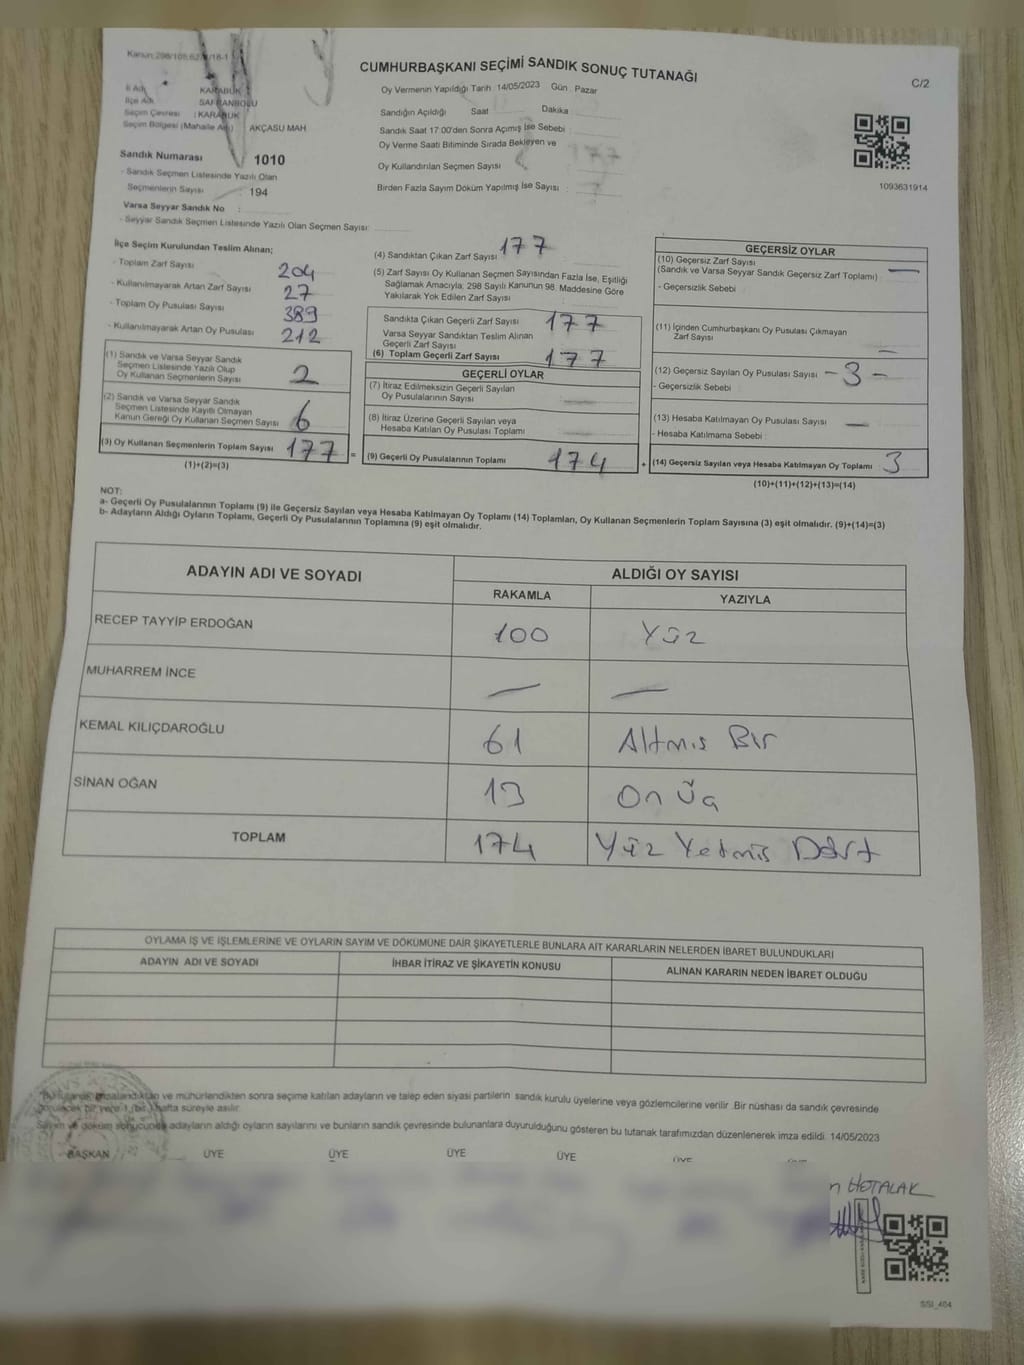 CUMHURBAŞKANI SEÇİMİ SANDIK SONUÇ TUTANAĞI
C/2
İl Adı KARABÜK
İlçe Adı SAFRANBOLU
Seçim Çevresi : KARABÜK
Seçim Bölgesi (Mahalle Adı) AKÇASU MAH
Sandık Numarası 1010
- Sandık Seçmen Listesinde Yazılı Olan
Seçmenlerin Sayısı : 194
Varsa Seyyar Sandık No :
- Seyyar Sandık Seçmen Listesinde Yazılı Olan Seçmen Sayısı:
Oy Vermenin Yapıldığı Tarih 14/05/2023 Gün : Pazar
Sandığın Açıldığı Saat Dakika
Sandık Saat 17.00'den Sonra Açımış İse Sebebi :
Oy Verme Saati Bitiminde Sırada Bekleyen ve
Oy Kullandırılan Seçmen Sayısı :
Birden Fazla Sayım Döküm Yapılmış İse Sayısı :
1093631914
İlçe Seçim Kurulundan Teslim Alınan;
- Toplam Zarf Sayısı 204
- Kullanılmayarak Artan Zarf Sayısı 27
- Toplam Oy Pusulası Sayısı 389
- Kullanılmayarak Artan Oy Pusulası 212
(1) Sandık ve Varsa Seyyar Sandık
Seçmen Listesinde Yazılı Olup
Oy Kullanan Seçmenlerin Sayısı 2
(2) Sandık ve Varsa Seyyar Sandık
Seçmen Listesinde Kayıtlı Olmayan
Kanun Gereği Oy Kullanan Seçmen Sayısı 6
(3) Oy Kullanan Seçmenlerin Toplam Sayısı 177 =
(1)+(2)=(3)
(4) Sandıktan Çıkan Zarf Sayısı 177
(5) Zarf Sayısı Oy Kullanan Seçmen Sayısından Fazla İse, Eşitliği
Sağlamak Amacıyla, 298 Sayılı Kanunun 98. Maddesine Göre
Yakılarak Yok Edilen Zarf Sayısı
Sandıkta Çıkan Geçerli Zarf Sayısı 177
Varsa Seyyar Sandıktan Teslim Alınan
Geçerli Zarf Sayısı
(6) Toplam Geçerli Zarf Sayısı 177
GEÇERLİ OYLAR
(7) İtiraz Edilmeksizin Geçerli Sayılan
Oy Pusulalarının Sayısı
(8) İtiraz Üzerine Geçerli Sayılan veya
Hesaba Katılan Oy Pusulası Toplamı
(9) Geçerli Oy Pusulalarının Toplamı 174 +
GEÇERSİZ OYLAR
(10) Geçersiz Zarf Sayısı
(Sandık ve Varsa Seyyar Sandık Geçersiz Zarf Toplamı) —
- Geçersizlik Sebebi
(11) İçinden Cumhurbaşkanı Oy Pusulası Çıkmayan
Zarf Sayısı —
(12) Geçersiz Sayılan Oy Pusulası Sayısı - 3 -
- Geçersizlik Sebebi
(13) Hesaba Katılmayan Oy Pusulası Sayısı —
- Hesaba Katılmama Sebebi
(14) Geçersiz Sayılan veya Hesaba Katılmayan Oy Toplamı 3
(10)+(11)+(12)+(13)=(14)
NOT:
a- Geçerli Oy Pusulalarının Toplamı (9) ile Geçersiz Sayılan veya Hesaba Katılmayan Oy Toplamı (14) Toplamları, Oy Kullanan Seçmenlerin Toplam Sayısına (3) eşit olmalıdır. (9)+(14)=(3)
b- Adayların Aldığı Oyların Toplamı, Geçerli Oy Pusulalarının Toplamına (9) eşit olmalıdır.
ADAYIN ADI VE SOYADI ALDIĞI OY SAYISI
RAKAMLA YAZIYLA
RECEP TAYYİP ERDOĞAN 100 Yüz
MUHARREM İNCE — —
KEMAL KILIÇDAROĞLU 61 Altmış Bir
SİNAN OĞAN 13 On Üç
TOPLAM 174 Yüz Yetmiş Dört
OYLAMA İŞ VE İŞLEMLERİNE VE OYLARIN SAYIM VE DÖKÜMÜNE DAİR ŞİKAYETLERLE BUNLARA AİT KARARLARIN NELERDEN İBARET BULUNDUKLARI
ADAYIN ADI VE SOYADI İHBAR İTİRAZ VE ŞİKAYETİN KONUSU ALINAN KARARIN NEDEN İBARET OLDUĞU
ve mühürlendikten sonra seçime katılan adayların ve talep eden siyasi partilerin sandık kurulu üyelerine veya gözlemcilerine verilir. Bir nüshası da sandık çevresinde
hafta süreyle asılır.
Sayım ve döküm sonucunda adayların aldığı oyların sayılarını ve bunların sandık çevresinde bulunanlara duyurulduğunu gösteren bu tutanak tarafımızdan düzenlenerek imza edildi. 14/05/2023
BAŞKAN ÜYE ÜYE ÜYE ÜYE ÜYE
HOTALAK
SSI_404